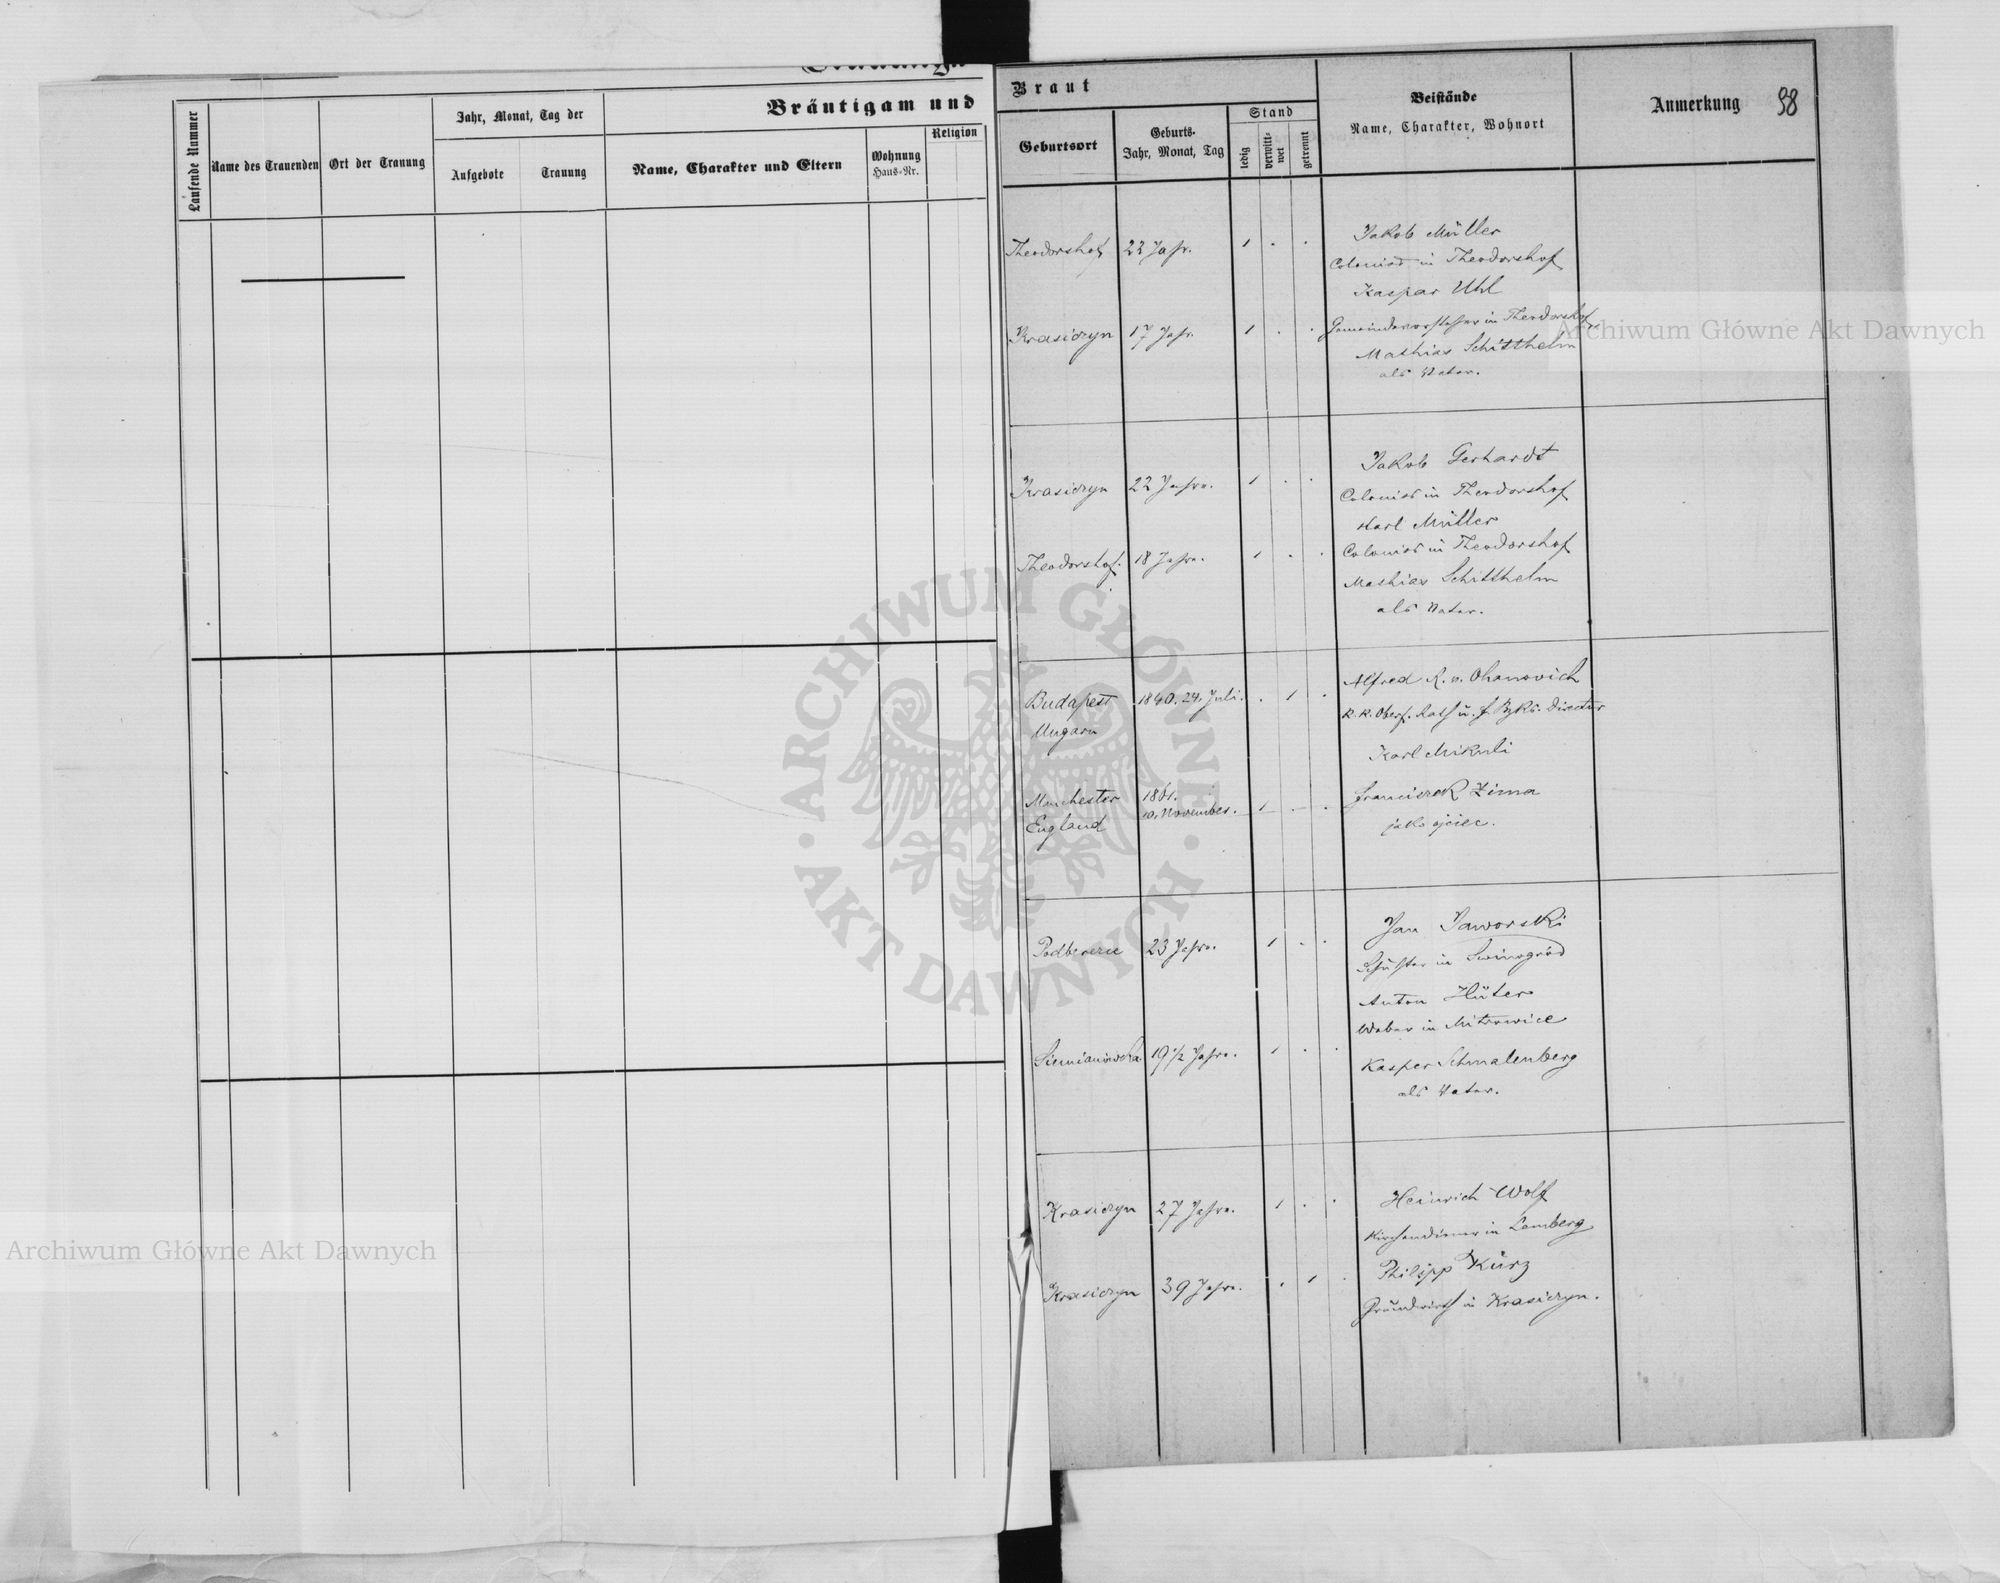 Bräutigam und
Laufende Nummer
Name des Trauenden
Ort der Trauung
Jahr, Monat, Tag der
Aufgebote
Trauung
Name, Charakter und Eltern
Wohnung
Haus-Nr.
Religion
Braut
Geburtsort
Geburts-
Jahr, Monat, Tag
Stand
ledig
verwitt-
wet
getrennt
Beistände
Name, Charakter, Wohnort
Anmerkung
98
Theodorshof 22 Jahr. 1 . .
Jakob Müller
Colonist in Theodorshof
Kaspar Uhl
Krasiczyn 17 Jahr. 1 . .
Gemeindevorsteher in Theodorshof
Mathias Schitthelm
als Vater.
Jakob Gerhardt
Krasiczyn 22 Jahre. 1 . .
Colonist in Theodorshof
Karl Müller
Theodorshof. 18 Jahre. 1 . .
Colonist in Theodorshof
Mathias Schitthelm
als Vater.
Alfred R. v. Ohanovich
Budapest 1840. 24. Juli. . 1 .
Ungarn
Director
Karl Mikuli
Manchester 1861.
England 10. November. 1 . .
Franciszek Zima
jako ojciec.
Jan Jaworski
Podberezce 23 Jahre. 1 . .
Schuster in Swinogród
Anton Hüter
Weber in Mitrowice
Siemianówka 19 1/2 Jahre. 1 . .
Kasper Schmalenberg
als Vater.
Krasiczyn 27 Jahre. 1 . .
Heinrich Wolf
Kirchendiener in Lemberg
Philipp Kurz
Krasiczyn 39 Jahre. . 1 .
Grundwirth in Krasiczyn.
Archiwum Główne Akt Dawnych
Archiwum Główne Akt Dawnych
ARCHIWUM GŁÓWNE · AKT DAWNYCH ·